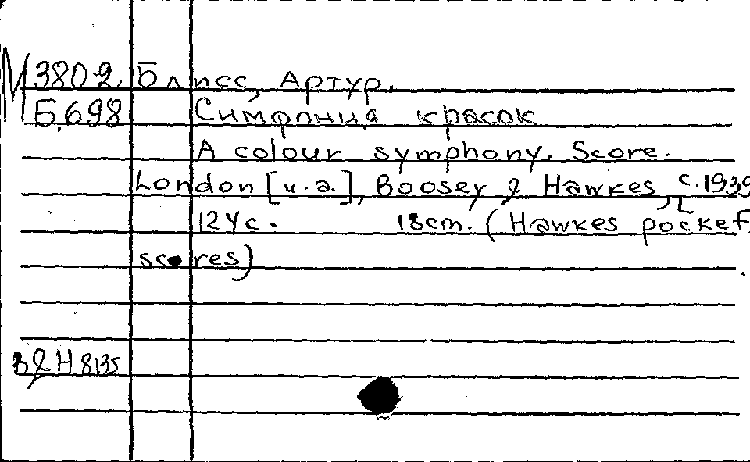 М 380-2. Блисс, Артур.
Б.698 Симфония красок
A colour symphony. Score.
London [u.a.], Boosey & Hawkes, c.1939
124c. 18cm. (Hawkes pocket
scores)
B&H 8135